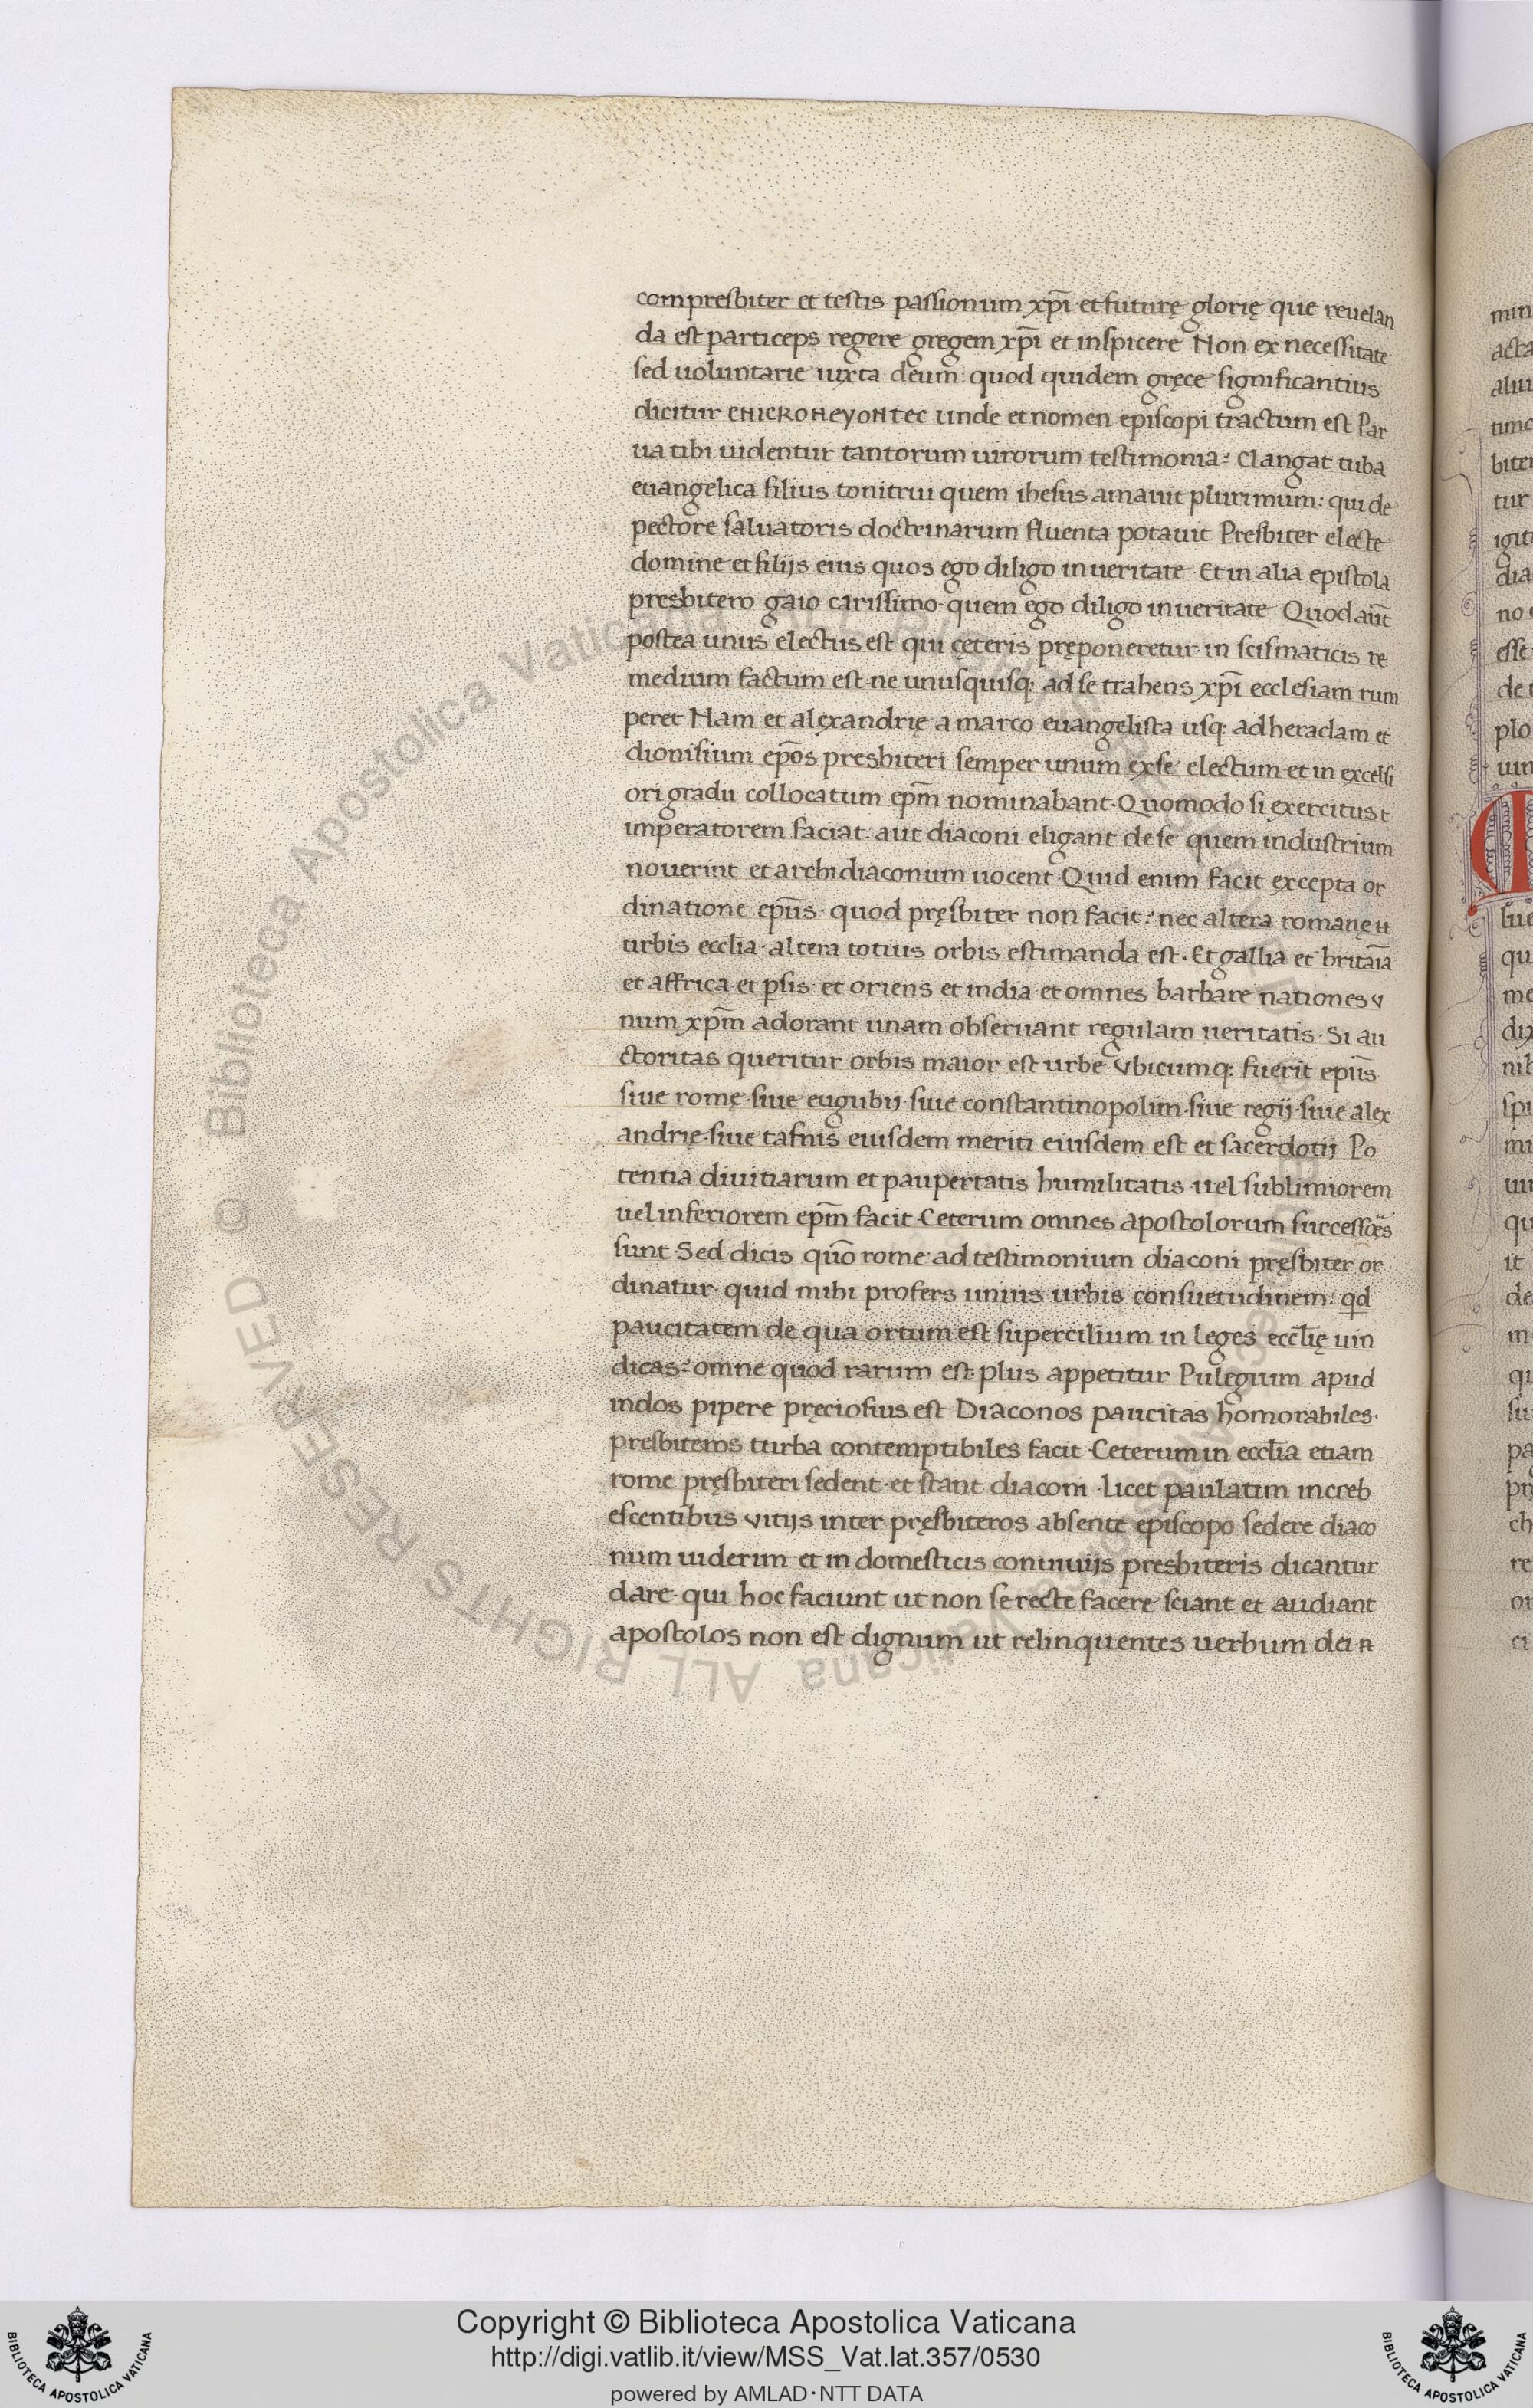 compresbiter et testis passionum xp̄i et futurę glorię que reuelan
da est particeps regere gregem xp̄i et inspicere Non ex necessitate
sed uoluntarie iuxta deum quod quidem gręce significantius
dicitur ЄΠΙCKOΠEYOΠTEC unde et nomen episcopi tractum est Par
ua tibi uidentur tantorum uirorum testimonia? Clangat tuba
euangelica filius tonitrui quem ihesus amauit plurimum: qui de
pectore saluatoris doctrinarum fluenta potauit Presbiter electe
domine et filijs eius quos ego diligo in ueritate Et in alia epistola
presbitero gaio carissimo quem ego diligo in ueritate Quod aūt
postea unus electus est qui ceteris pręponeretur in scismaticis re
medium factum est ne unusquisq: ad se trahens xp̄i ecclesiam rum
peret Nam et alexandrię a marco euangelista usq: ad heraclam et
dionisium ep̄os presbiteri semper unum ex se electum et in excelsi
ori gradu collocatum ep̄m nominabant Quomodo si exercitus t
imperatorem faciat aut diaconi eligant de se quem industrium
nouerint et archidiaconum uocent Quid enim facit excepta or
dinatione ep̄us quod pręsbiter non facit? nec altera romanę u
urbis eccl̄ia altera totius orbis estimanda est. Et gallia et britāia
et affrica et psis et oriens et india et omnes barbare nationes v
num xp̄m adorant unam obseruant regulam ueritatis Si au
ctoritas queritur orbis maior est urbe vbicumq: fuerit ep̄us
siue romę siue eugubij siue constantinopolim siue regij siue alex
andrię siue tafnis eiusdem meriti eiusdem est et sacerdotij Po
tentia diuitiarum et paupertatis humilitatis uel sublimiorem
uel inferiorem ep̄m facit Ceterum omnes apostolorum successores
sunt Sed dicis quō rome ad testimonium diaconi pręsbiter or
dinatur quid mihi profers unius urbis consuetudinem: qd
paucitatem de qua ortum est supercilium in leges eccl̄ię uin
dicas? omne quod rarum est plus appetitur Pulegium apud
indos pipere pręciosius est Diaconos paucitas homorabiles
presbiteros turba contemptibiles facit Ceterum in eccl̄ia etiam
rome pręsbiteri sedent et stant diaconi Licet paulatim increb
escentibus vitijs inter pręsbiteros absente episcopo sedere diaco
num uiderim et in domesticis conuiuijs presbiteris dicantur
dare qui hoc faciunt ut non se recte facere sciant et audiant
apostolos non est dignum ut relinquentes uerbum dei n
Copyright © Biblioteca Apostolica Vaticana
http://digi.vatlib.it/view/MSS_Vat.lat.357/0530
powered by AMLAD·NTT DATA